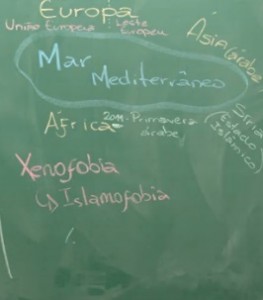 Europa
União Europeia Leste Europeu
Ásia (árabe)
Mar
Mediterrâneo
África - 2011 - Primavera árabe
Síria
(Estado Islâmico)
Xenofobia
↳ Islamofobia